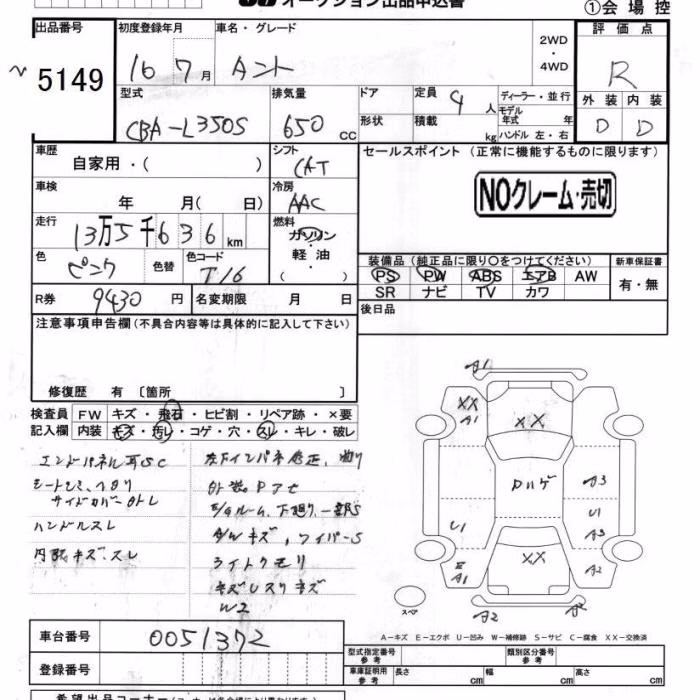 オークション出品申込書
①会場控
出品番号 初度登録年月 車名・グレード 2WD・4WD 評価点
5149 16 7月 タント R
型式 排気量 ドア 定員 4人 ディーラー・並行 外装 内装
CBA-L350S 650 cc 形状 積載 kg モデル年式 年式 ハンドル 左・右 D D
車歴 自家用・( ) シフト CAT セールスポイント (正常に機能するものに限ります)
車検 年 月( 日) 冷房 AAC NOクレーム・売切
走行 13万5千636km 燃料 ガソリン 軽油 ( )
色 ピンク 色替 色コード T16
装備品 (純正品に限り○をつけてください) 新車保証書
PS PW ABS エアB AW 有・無
SR ナビ TV カワ
R券 9430円 名変期限 月 日 後日品
注意事項申告欄(不具合内容等は具体的に記入して下さい)
修復歴 有 〔箇所 〕
検査員 FW キズ・飛石・ヒビ割・リペア跡・×要
記入欄 内装 キズ・汚レ・コゲ・穴・スレ・キレ・破レ
ハンドルスレ
内張キズ、スレ
ライトクモリ
W2
A1
XX
A1
XX
Dハゲ
A3
U1
U1
A3
XX
A1
A2
A2
スペア
A2
A-キズ E-エクボ U-凹み W-補修跡 S-サビ C-腐食 XX-交換済
車台番号 0051372
登録番号
型式指定番号 参考 類別区分番号 参考
車庫証明用 参考 長さ cm 幅 cm 高さ cm
希望出品コーナー